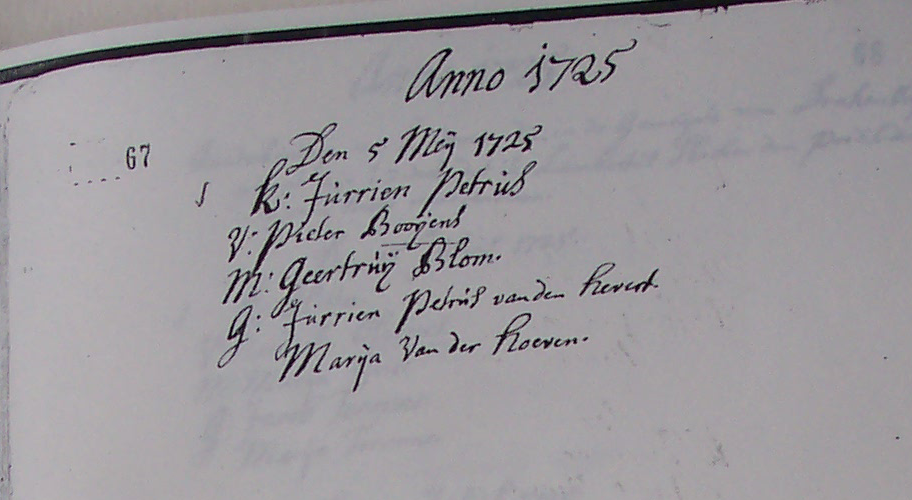 Anno 1725
67
Den 5 Meÿ 1725
K: Jurrien Petrus
V: Pieter Booÿens
M: Geertruÿ Blom.
G: Jurrien Petrus van den
Marÿa Van der Hoeven.